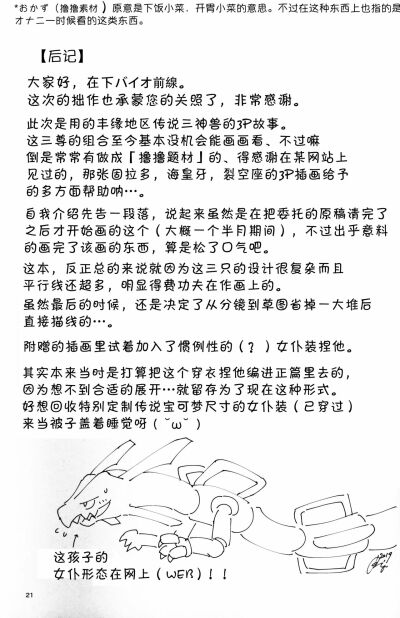 *おかず（撸撸素材）原意是下饭小菜、开胃小菜的意思。不过在这种东西上也指的是
オナニー时候看的这类东西。
【后记】
大家好，在下バイオ前線。
这次的拙作也承蒙您的关照了，非常感谢。
此次是用的丰缘地区传说三神兽的3P故事。
这三尊的组合至今基本没机会能画画看、不过嘛
倒是常常有做成『撸撸题材』的、得感谢在某网站上
见过的，那张固拉多，海皇牙，裂空座的3P插画给予
的多方面帮助呐…。
自我介绍先告一段落，说起来虽然是在把委托的原稿请完了
之后才开始画的这个（大概一个半月期间），不过出乎意料
的画完了该画的东西，算是松了口气吧。
这本，反正总的来说就因为这三只的设计很复杂而且
平行线还超多，明显得费功夫在作画上的。
虽然最后的时候，还是决定了从分镜到草图省掉一大堆后
直接描线的…。
附赠的插画里试着加入了惯例性的（？）女仆装捏他。
其实本来当时是打算把这个穿衣捏他编进正篇里去的，
因为想不到合适的展开…就留存为了现在这种形式。
好想回收特别定制传说宝可梦尺寸的女仆装（已穿过）
来当被子盖着睡觉呀（˘ω˘）
这孩子的
女仆形态在网上（WEB）！！
21